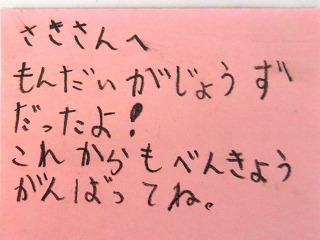 さきさんへ
もんだいがじょうず
だったよ!
これからもべんきょう
がんばってね。